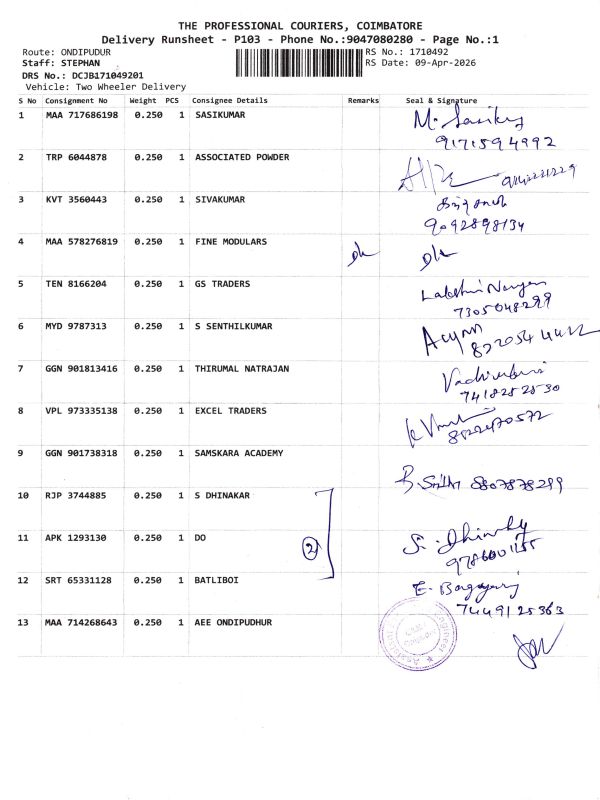 THE PROFESSIONAL COURIERS, COIMBATORE
Delivery Runsheet - P103 - Phone No.:9047080280 - Page No.:1
Route: ONDIPUDUR RS No.: 1710492
Staff: STEPHAN RS Date: 09-Apr-2026
DRS No.: DCJB171049201
Vehicle: Two Wheeler Delivery
S No Consignment No Weight PCS Consignee Details Remarks Seal & Signature
1 MAA 717686198 0.250 1 SASIKUMAR
9171594992
2 TRP 6044878 0.250 1 ASSOCIATED POWDER
3 KVT 3560443 0.250 1 SIVAKUMAR
9092898134
4 MAA 578276819 0.250 1 FINE MODULARS
5 TEN 8166204 0.250 1 GS TRADERS
7305048299
6 MYD 9787313 0.250 1 S SENTHILKUMAR
7 GGN 901813416 0.250 1 THIRUMAL NATRAJAN
7418252530
8 VPL 973335138 0.250 1 EXCEL TRADERS
9 GGN 901738318 0.250 1 SAMSKARA ACADEMY
8807878299
10 RJP 3744885 0.250 1 S DHINAKAR
11 APK 1293130 0.250 1 DO 2
12 SRT 65331128 0.250 1 BATLIBOI
7449125363
13 MAA 714268643 0.250 1 AEE ONDIPUDHUR